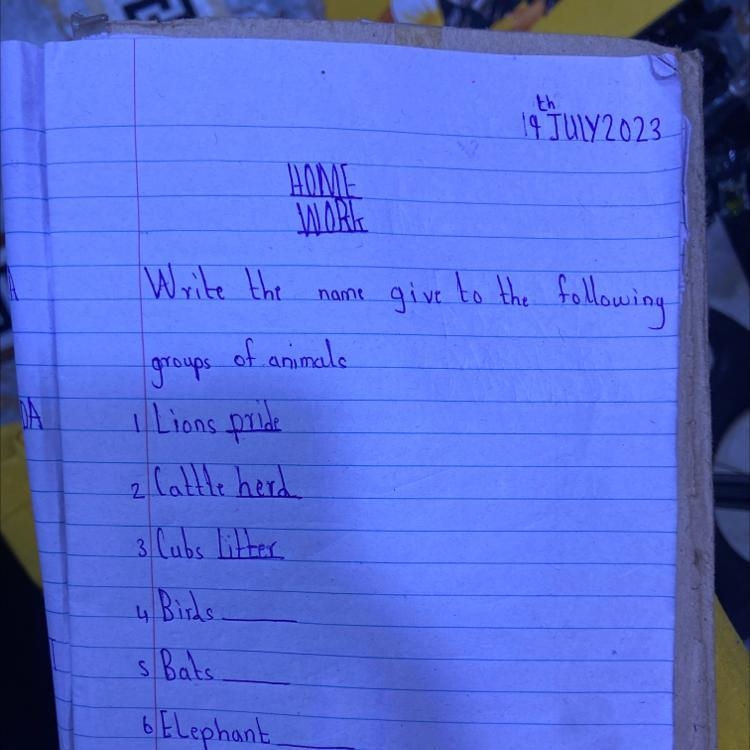 19th JULY 2023
HOME
WORK
Write the name give to the following
groups of animals
1 Lions pride
2 Cattle herd
3 Cubs litter
4 Birds ______
5 Bats ______
6 Elephant ______